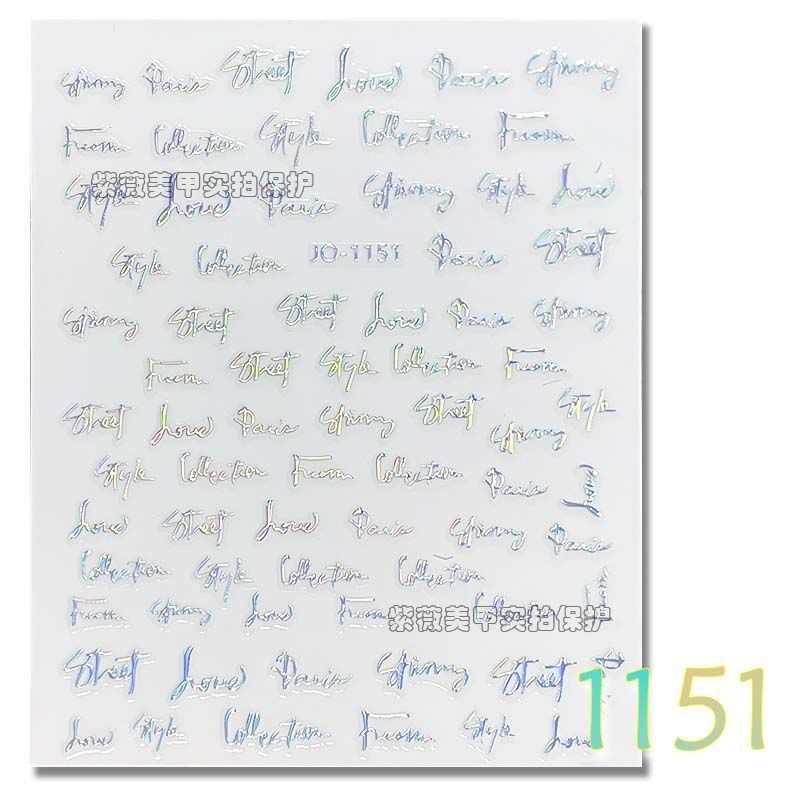 Shinny Paris Street Love Paris Shinny
From Collection Style Collection From
Style Love Paris Shinny Style Love
紫薇美甲实拍保护
Style Collection JO-1151 Paris Street
Shinny Street Street Love Paris Shinny
From Street Style Collection From
Street Love Paris Shinny Street Shinny Style
Style Collection From Collection Paris Love
Love Street Love Paris Shinny Paris
Collection Style Collection Collection
From Shinny Love From Collection From
紫薇美甲实拍保护
Street Love Paris Shinny Street
Love Style Collection From Style Love
1151